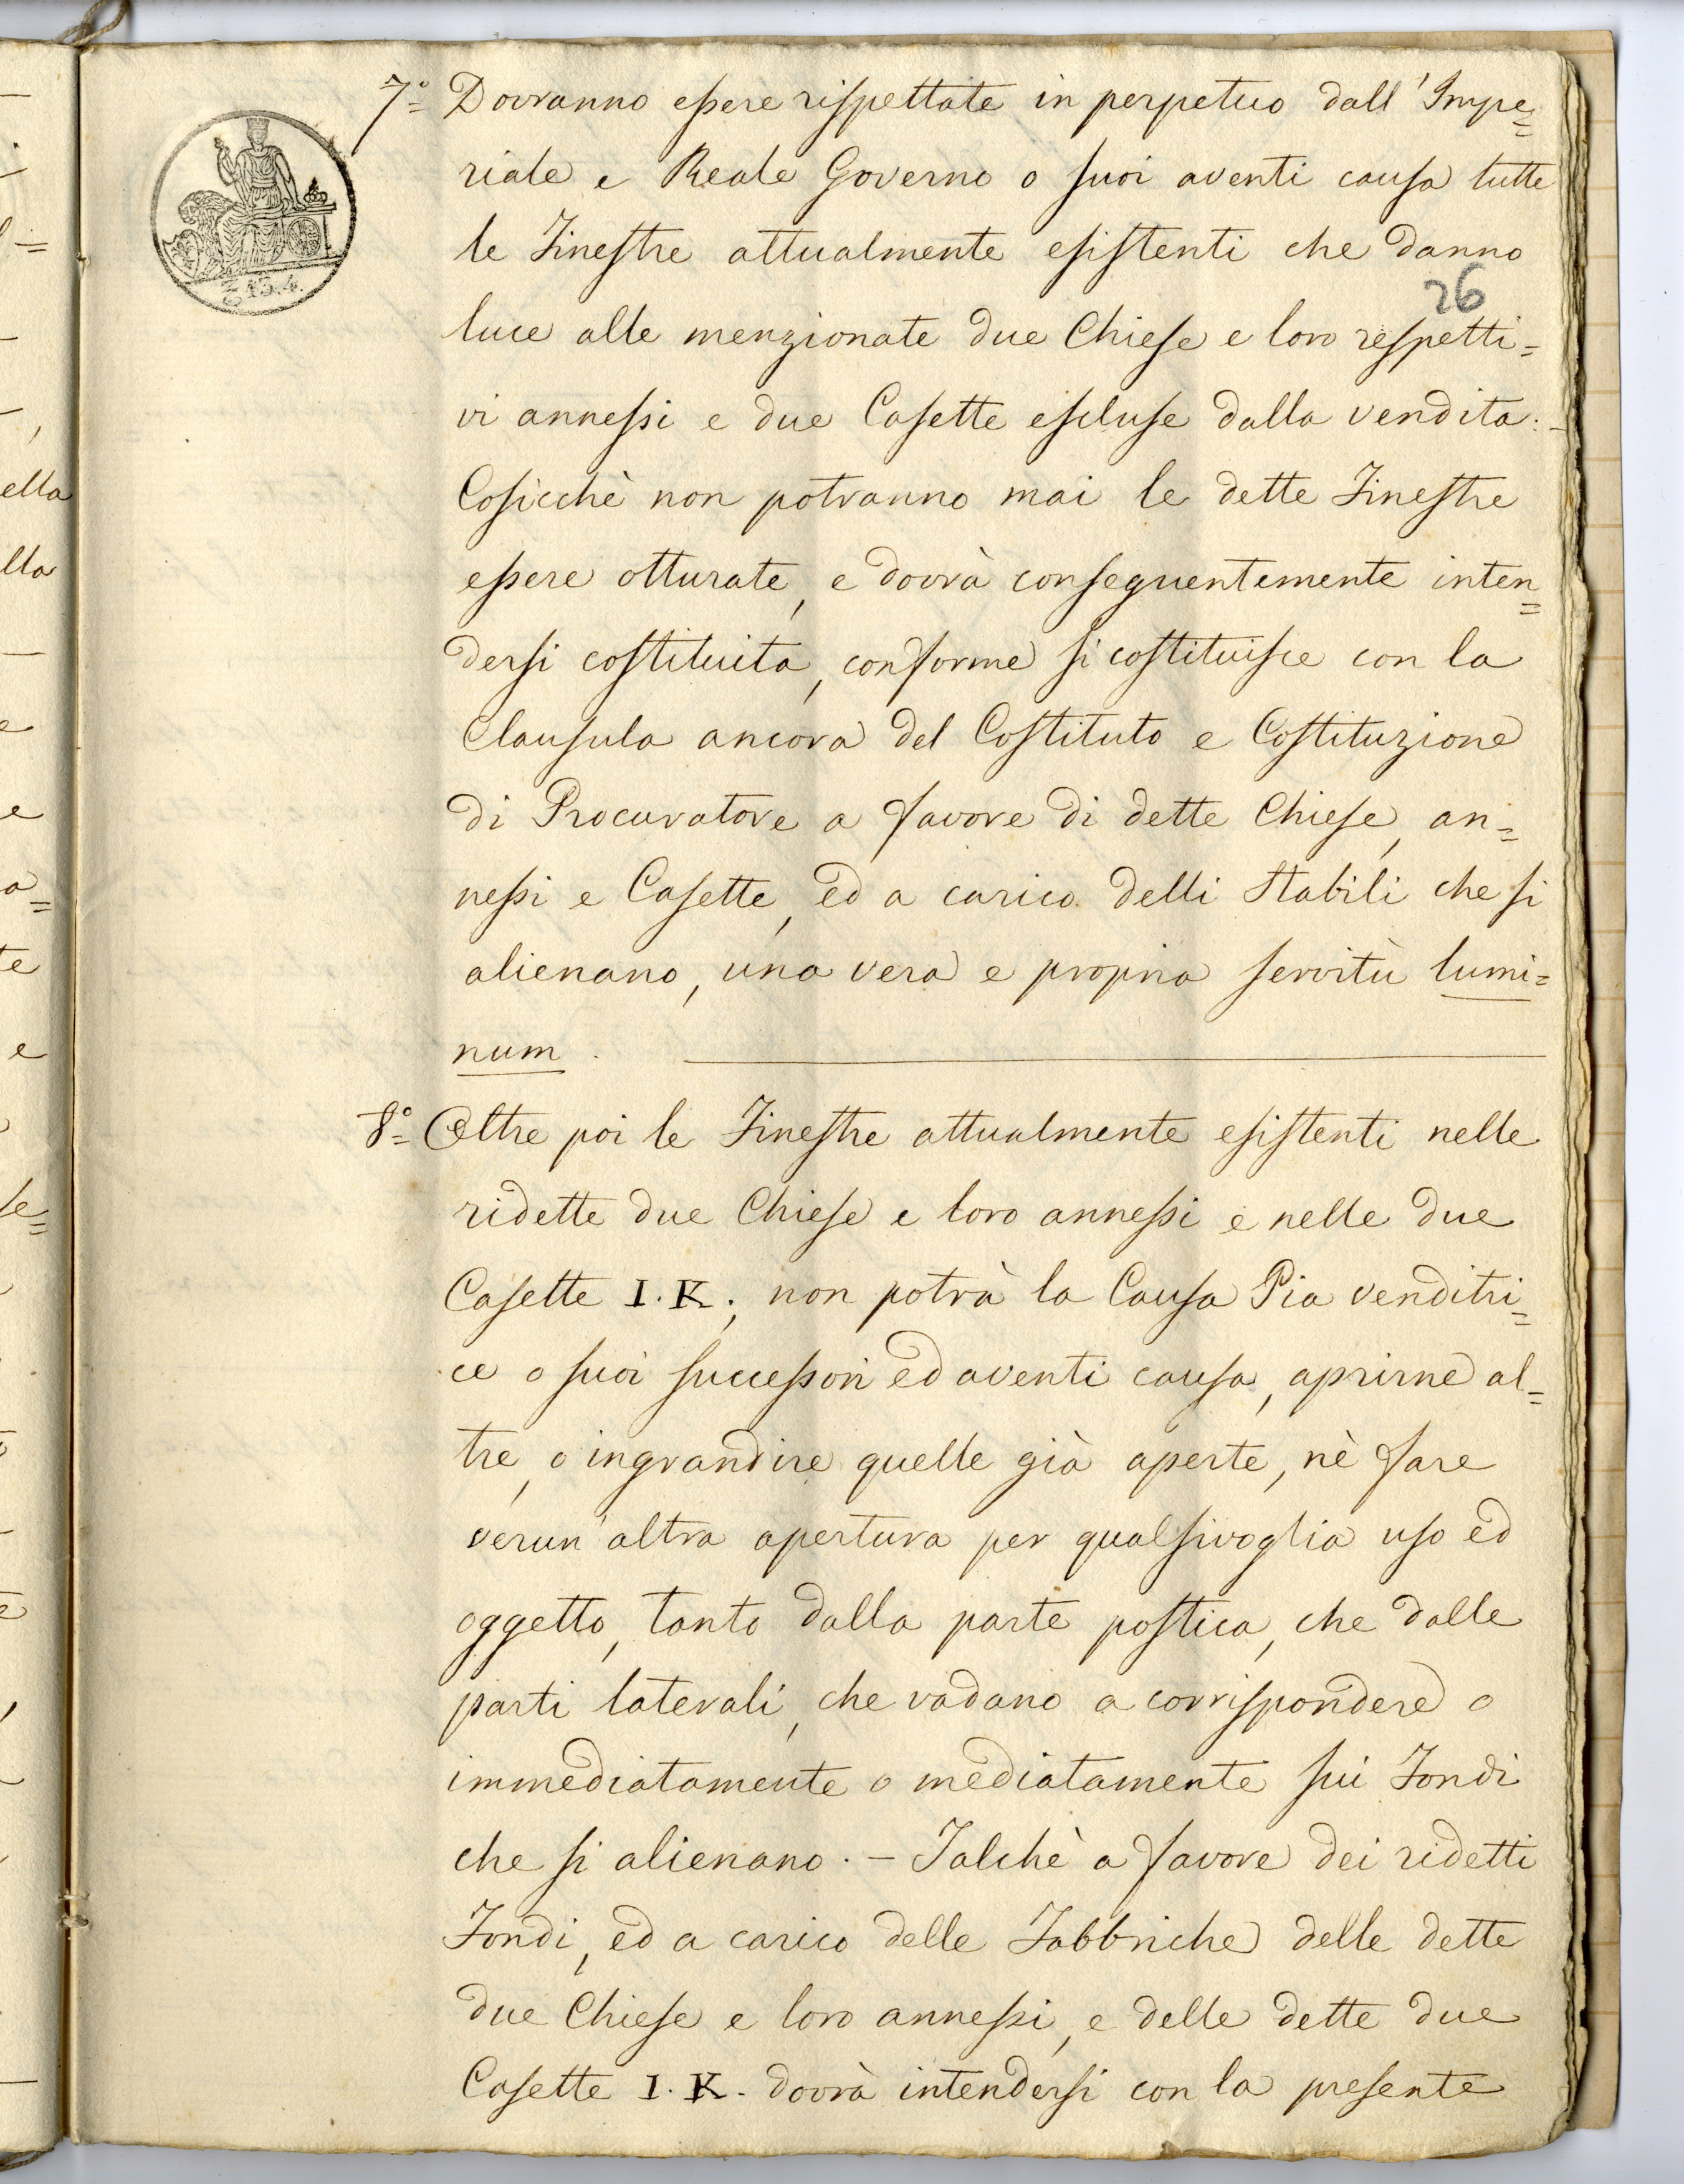 7°= Dovranno essere rispettate in perpetuo dall'Impe=
riale e Reale Governo o suoi aventi causa tutte
le Finestre attualmente esistenti che danno
26
luce alle menzionate due Chiese e loro respetti=
vi annessi e due Casette escluse dalla vendita. -
Cosicchè non potranno mai le dette Finestre
essere otturate, e dovrà conseguentemente inten=
dersi costituita, conforme si costituisce con la
Clausula ancora del Costituto e Costituzione
di Procuratore a favore di dette Chiese, an=
nessi e Casette, ed a carico delli Stabili che si
alienano, una vera e propria servitù lumi=
num.
8°= Oltre poi le Finestre attualmente esistenti nelle
ridette due Chiese e loro annessi e nelle due
Casette I. K; non potrà la Causa Pia venditri=
ce o suoi successori ed aventi causa, aprirne al=
tre, o ingrandire quelle già aperte, nè fare
verun'altra apertura per qualsivoglia uso ed
oggetto, tanto dalla parte postica, che dalle
parti laterali, che vadano a corrispondere o
immediatamente o mediatamente sui Fondi
che si alienano. - Talchè a favore dei ridetti
Fondi, ed a carico delle Fabbriche delle dette
due Chiese e loro annessi, e delle dette due
Casette I. K. dovrà intendersi con la presente